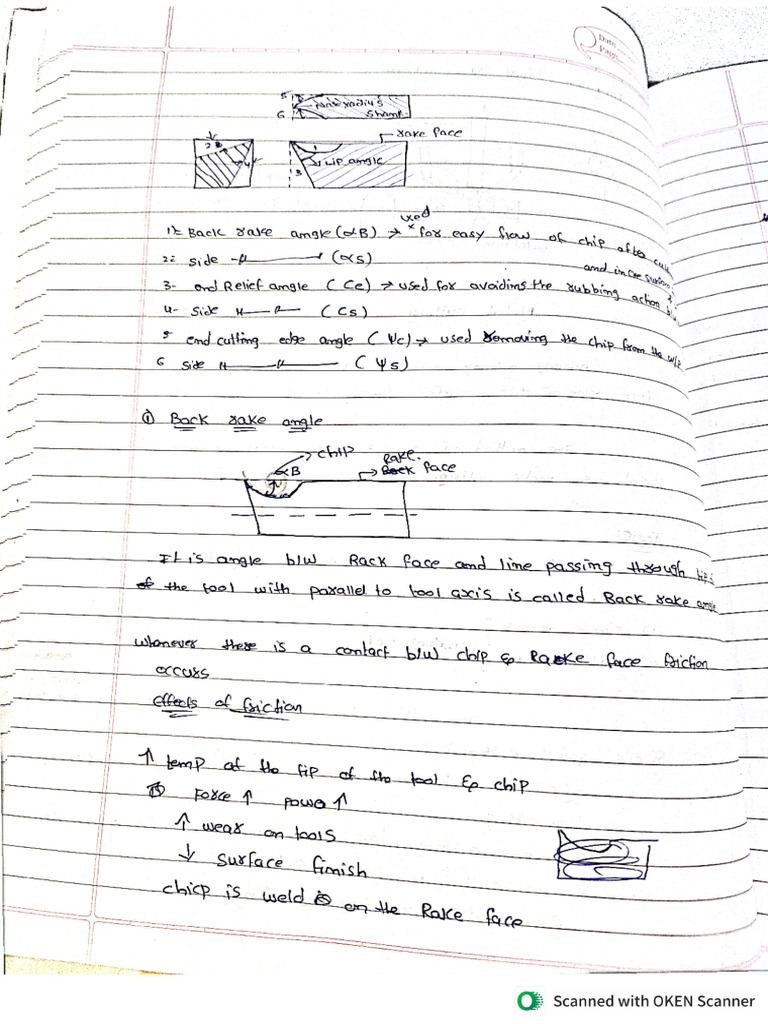 Date
Page
5
nose radius
6
shank
rake face
2
4
1
Lip angle
3
used
1:- Back rake angle (αB) → for easy flow of chip after
2:- side -〃- (αs)
and
3- end Relief angle (Ce) → used for avoiding the rubbing action
4- side 〃 - 〃 - (Cs)
5 end cutting edge angle (Ψc) → used Removing the chip from the w/p
6 side 〃 - 〃 - (Ψs)
① Back rake angle
chip
αB
Rake
Back face
It is angle b/w Rack face and line passing through
of the tool with parallel to tool axis is called Back rake angle
whenever there is a contact b/w chip & Rake face friction
occurs
effects of friction
↑ temp of the tip of the tool & chip
Force ↑ power ↑
↑ wear on tools
↓ surface finish
chicp is weld on the Rake face
Scanned with OKEN Scanner